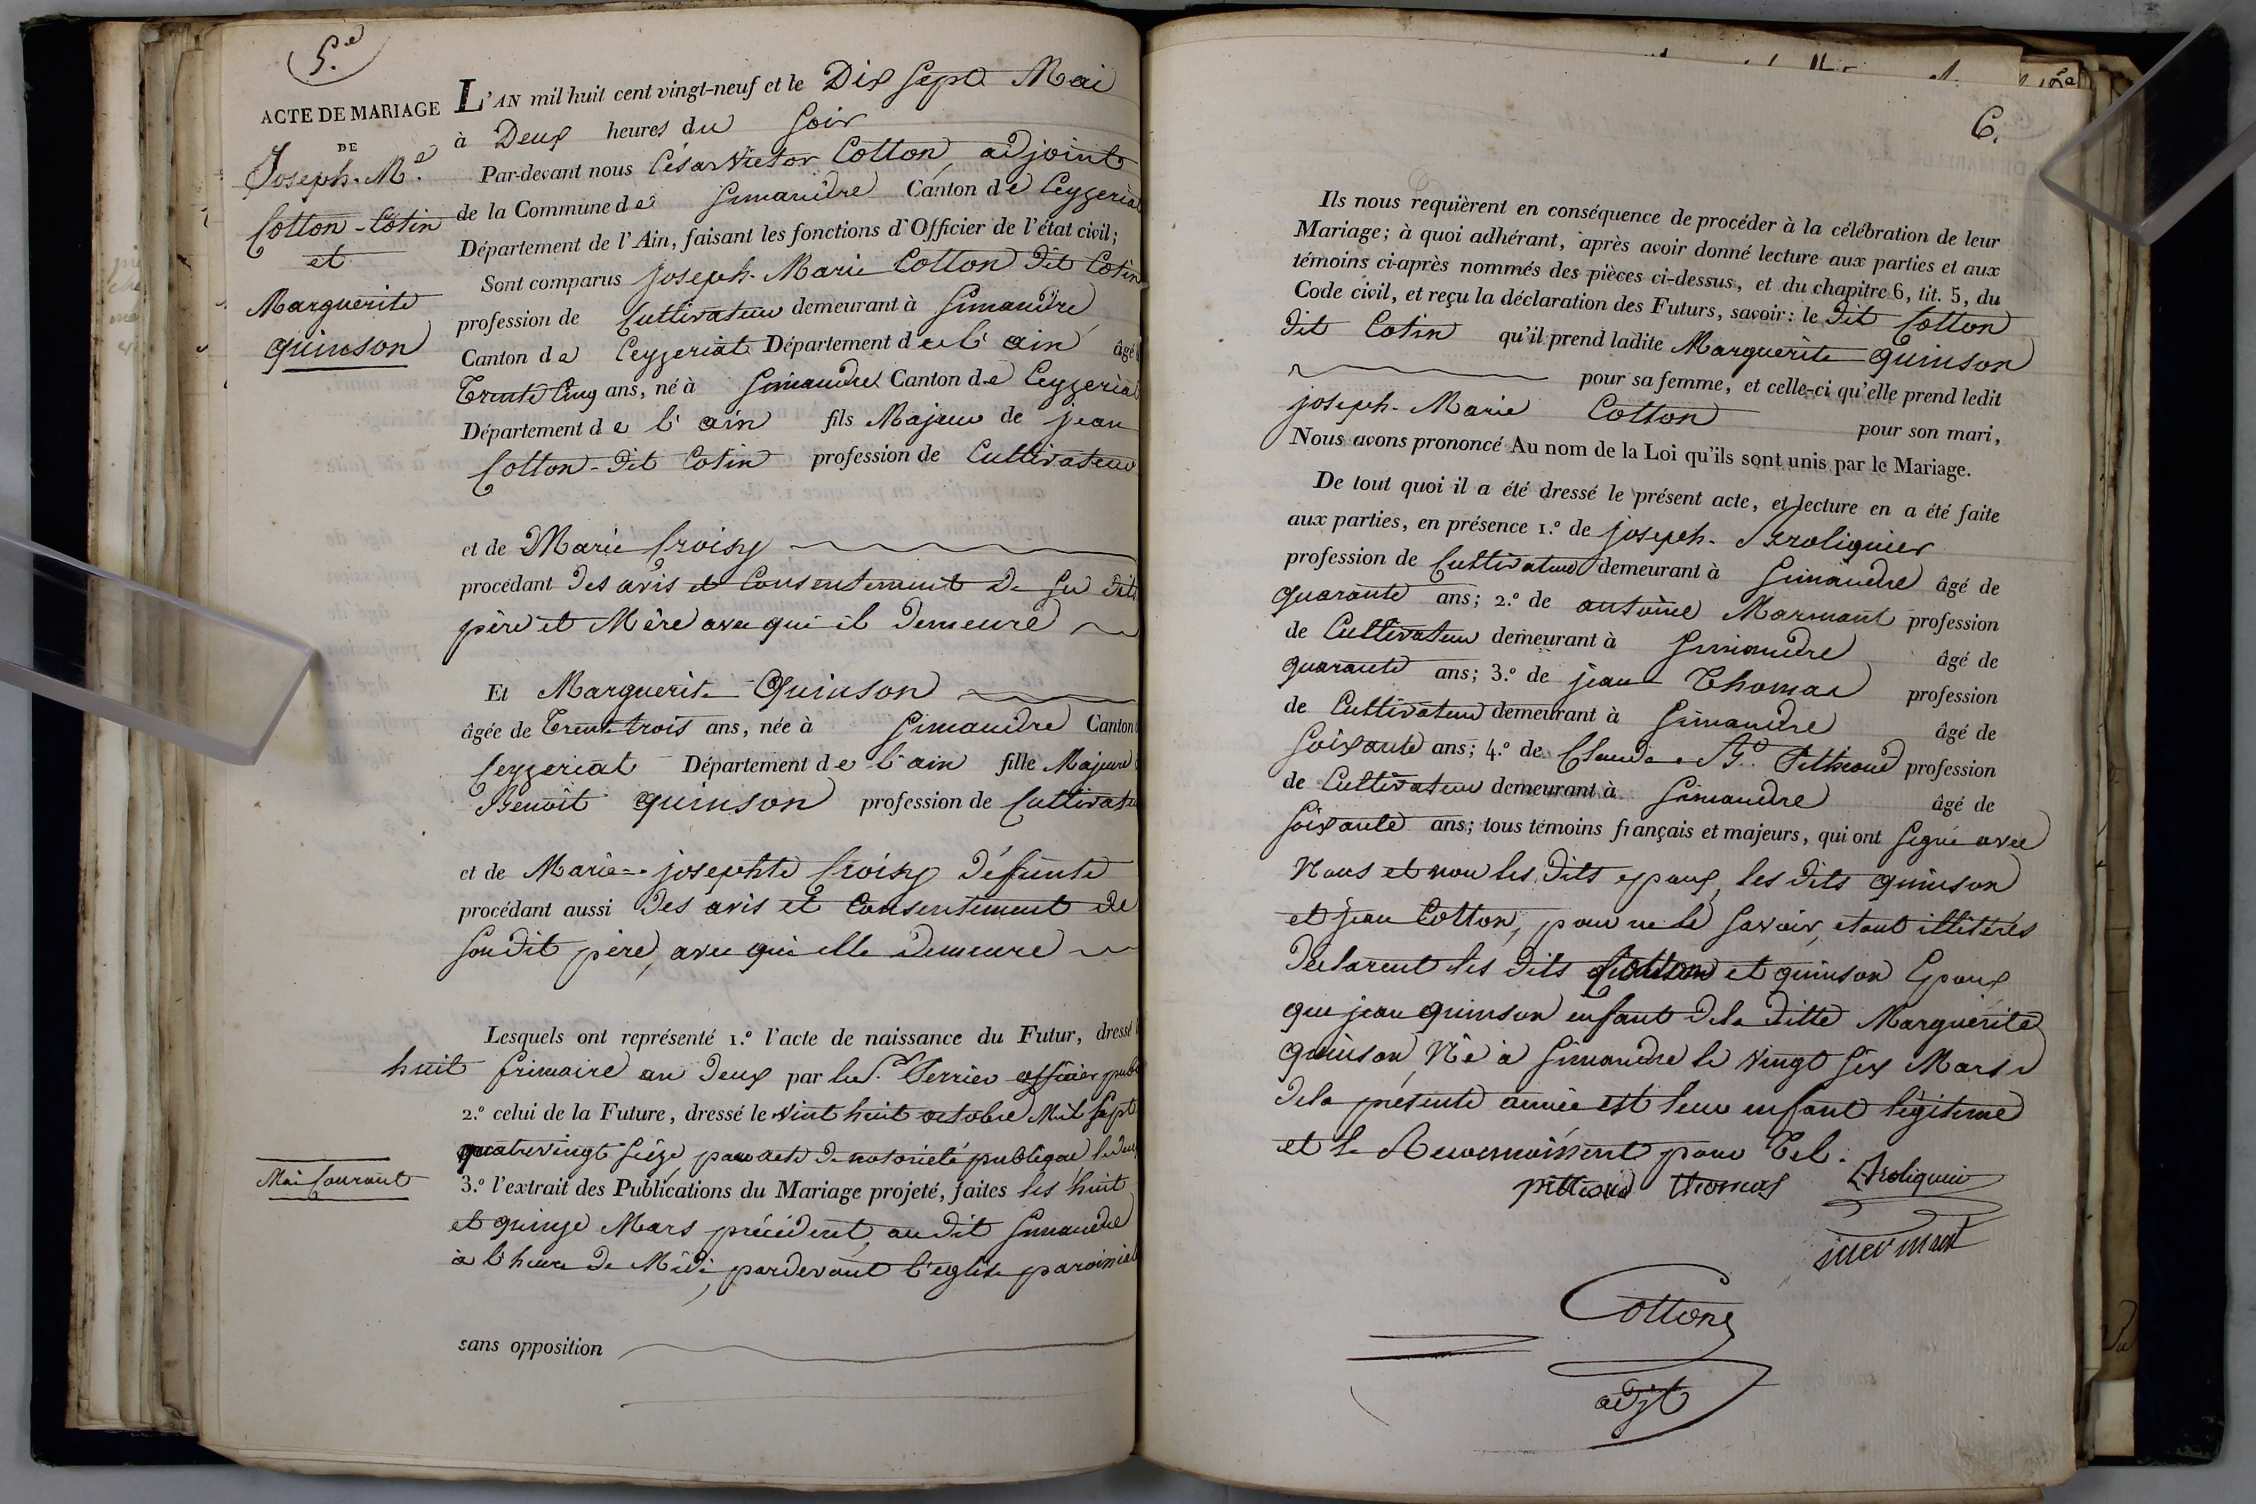 5.e
ACTE DE MARIAGE
DE
Joseph-M.e
Cotton-Cotin
et
Marguerite
quinson
L'AN mil huit cent vingt-neuf et le Dix sept Mai
à Deux heures du Soir
Par-devant nous César Victor Cotton, adjoint
de la Commune de Simandre Canton de Ceyzeriat
Département de l'Ain, faisant les fonctions d'Officier de l'état civil;
Sont comparus joseph-Marie Cotton dit Cotin
profession de Cultivateur demeurant à Simandre
Canton de Ceyzeriat Département de l'ain âgé
Trente Cinq ans, né à Simandre Canton de Ceyzeriat
Département de l'ain fils Majeur de jean
Cotton-dit Cotin profession de Cultivateur
et de Marie Croisy
procédant des avis et Consentement de ses dits
père et Mère avec qui il demeure
Et Marguerite Quinson
âgée de Trente trois ans, née à Simandre Canton
Ceyzeriat Département de l'ain fille Majeure
Benoit quinson profession de Cultivateur
et de Marie-josephte Croisy défunte
procédant aussi des avis et Consentement de
son dit père, avec qui elle demeure
Lesquels ont représenté 1.º l'acte de naissance du Futur, dressé
huit frimaire an deux par le S.r Perrier officier publ
2.º celui de la Future, dressé le vint huit octobre Mil Sept
quatrevingt Seize par acte de notoriété publique le deux
Mai Courant
3.º l'extrait des Publications du Mariage projeté, faites les huit
et quinze Mars précédent, audit Simandre
à l'heure de Midi, pardevant l'eglise paroissial
sans opposition
6.
Ils nous requièrent en conséquence de procéder à la célébration de leur
Mariage; à quoi adhérant, après avoir donné lecture aux parties et aux
témoins ci-après nommés des pièces ci-dessus, et du chapitre 6, tit. 5, du
Code civil, et reçu la déclaration des Futurs, savoir: le dit Cotton
dit Cotin qu'il prend ladite Marguerite quinson
pour sa femme, et celle-ci qu'elle prend ledit
joseph-Marie Cotton pour son mari,
Nous avons prononcé Au nom de la Loi qu'ils sont unis par le Mariage.
De tout quoi il a été dressé le présent acte, et lecture en a été faite
aux parties, en présence 1.º de joseph Broliquier
profession de Cultivateur demeurant à Simandre âgé de
quarante ans; 2.º de antoine Marmont profession
de Cultivateur demeurant à Simandre âgé de
quarante ans; 3.º de jean Thomas profession
de Cultivateur demeurant à Simandre âgé de
Soixante ans; 4.º de Claude Pittioud profession
de Cultivateur demeurant à Simandre âgé de
Soixante ans; tous témoins français et majeurs, qui ont signé avec
Nous et non les dits epoux, les dits quinson
et jean Cotton, pour ne le savoir, etant illitérés
declarent les dits Cotton et quinson Epoux
que jean quinson enfant de la ditte Marguérite
quinson Né à Simandre le vingt six Mars
de la présente année est leur enfant légitime
et le Reconnoissent pour Tel.
pittioud thomas Broliquier
marmont
Cotton
adjt